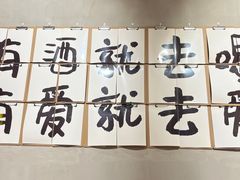 有酒就去喝
有爱就去爱